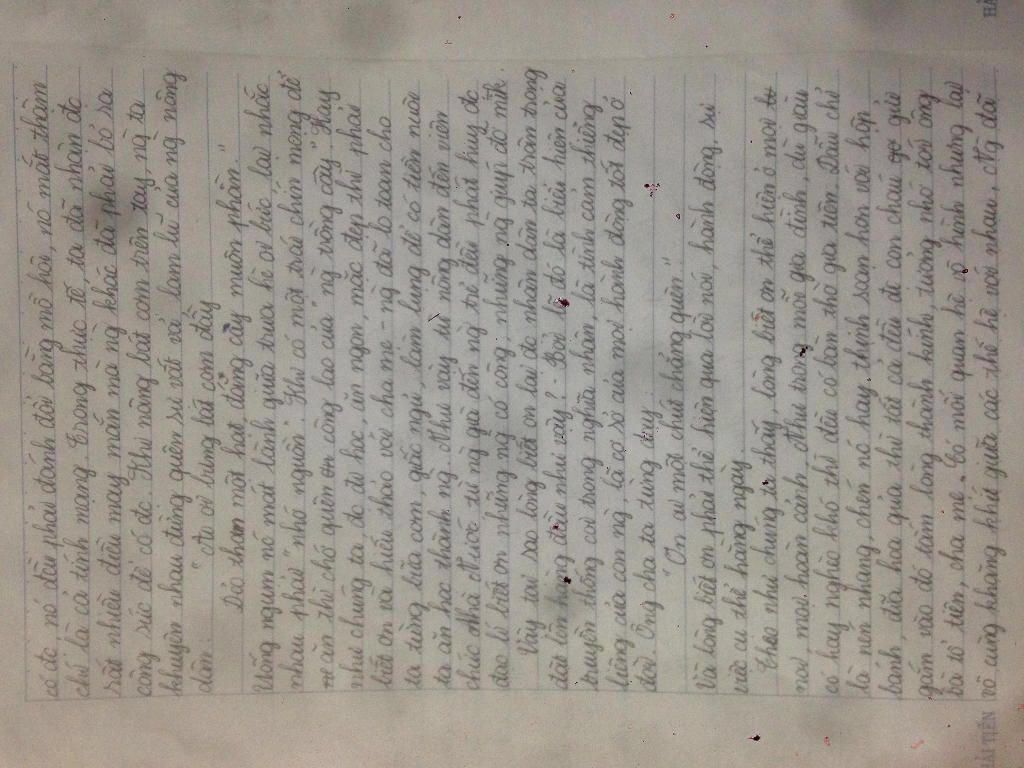 có đc, nó đều phải đánh đổi bằng mồ hôi, nó mắt thậm
chí là cả tính mạng. Trong thực tế ta đã nhận đc
rất nhiều điều may mắn mà ng khác đã phải bỏ ra
công sức để có đc. Khi nâng bát cơm trên tay, ng ta
khuyên nhau đừng quên sự vất vả lam lũ của ng nông
dân:
"Ai ơi bưng bát cơm đầy
Dẻo thơm một hạt đắng cay muôn phần."
Uống ngụm nó mát lành giữa trưa hè oi bức lại nhắc
nhau phải "nhớ nguồn". Khi có một trái chín mọng để
ăn thì chớ quên công lao của "ng trồng cây". Hay
như chúng ta, đc đi học, ăn ngon, mặc đẹp thì phải
biết ơn và hiếu thảo với cha mẹ - ng đã lo toan cho
ta từng bữa cơm, giấc ngủ, làm lụng để có tiền nuôi
ta ăn học thành ng. Như vậy từ nông dân đến viên
chức Nhà Nước, từ ng già đến ng trẻ đều phát huy đc
đạo lí biết ơn những ng có công, những ng giúp đỡ mik
Vậy tại sao lòng biết ơn lại đc nhân dân ta trân trọng
đặt lên hàng đầu như vậy? - Bởi lẽ đó là biểu hiện của
truyền thống coi trọng nghĩa nhân, là tình cảm thiêng
liêng của con ng, là cơ sở của mọi hành động tốt đẹp ở
đời. Ông cha ta từng dạy:
"Ơn ai một chút chẳng quên"
Và lòng biết ơn phải thể hiện qua lời nói, hành động, sự
việc cụ thể hằng ngày.
Theo như chúng ta thấy, lòng biết ơn thể hiện ở mọi
nơi, mọi hoàn cảnh. Như trong mỗi gia đình, dù giàu
có hay nghèo khó thì đều có bàn thờ gia tiên. Dẫu chỉ
là nén nhang, chén nó hay thịnh soạn hơn với hộp
bánh, đĩa hoa quả thì tất cả đều để con cháu gửi
gắm vào đó tấm lòng thành kính, tưởng nhớ tới ông
bà tổ tiên, cha mẹ. Có mối quan hệ vô hình nhưng lại
vô cùng khăng khít giữa các thế hệ với nhau. Ng đã
HẢI TIẾN
HẢ